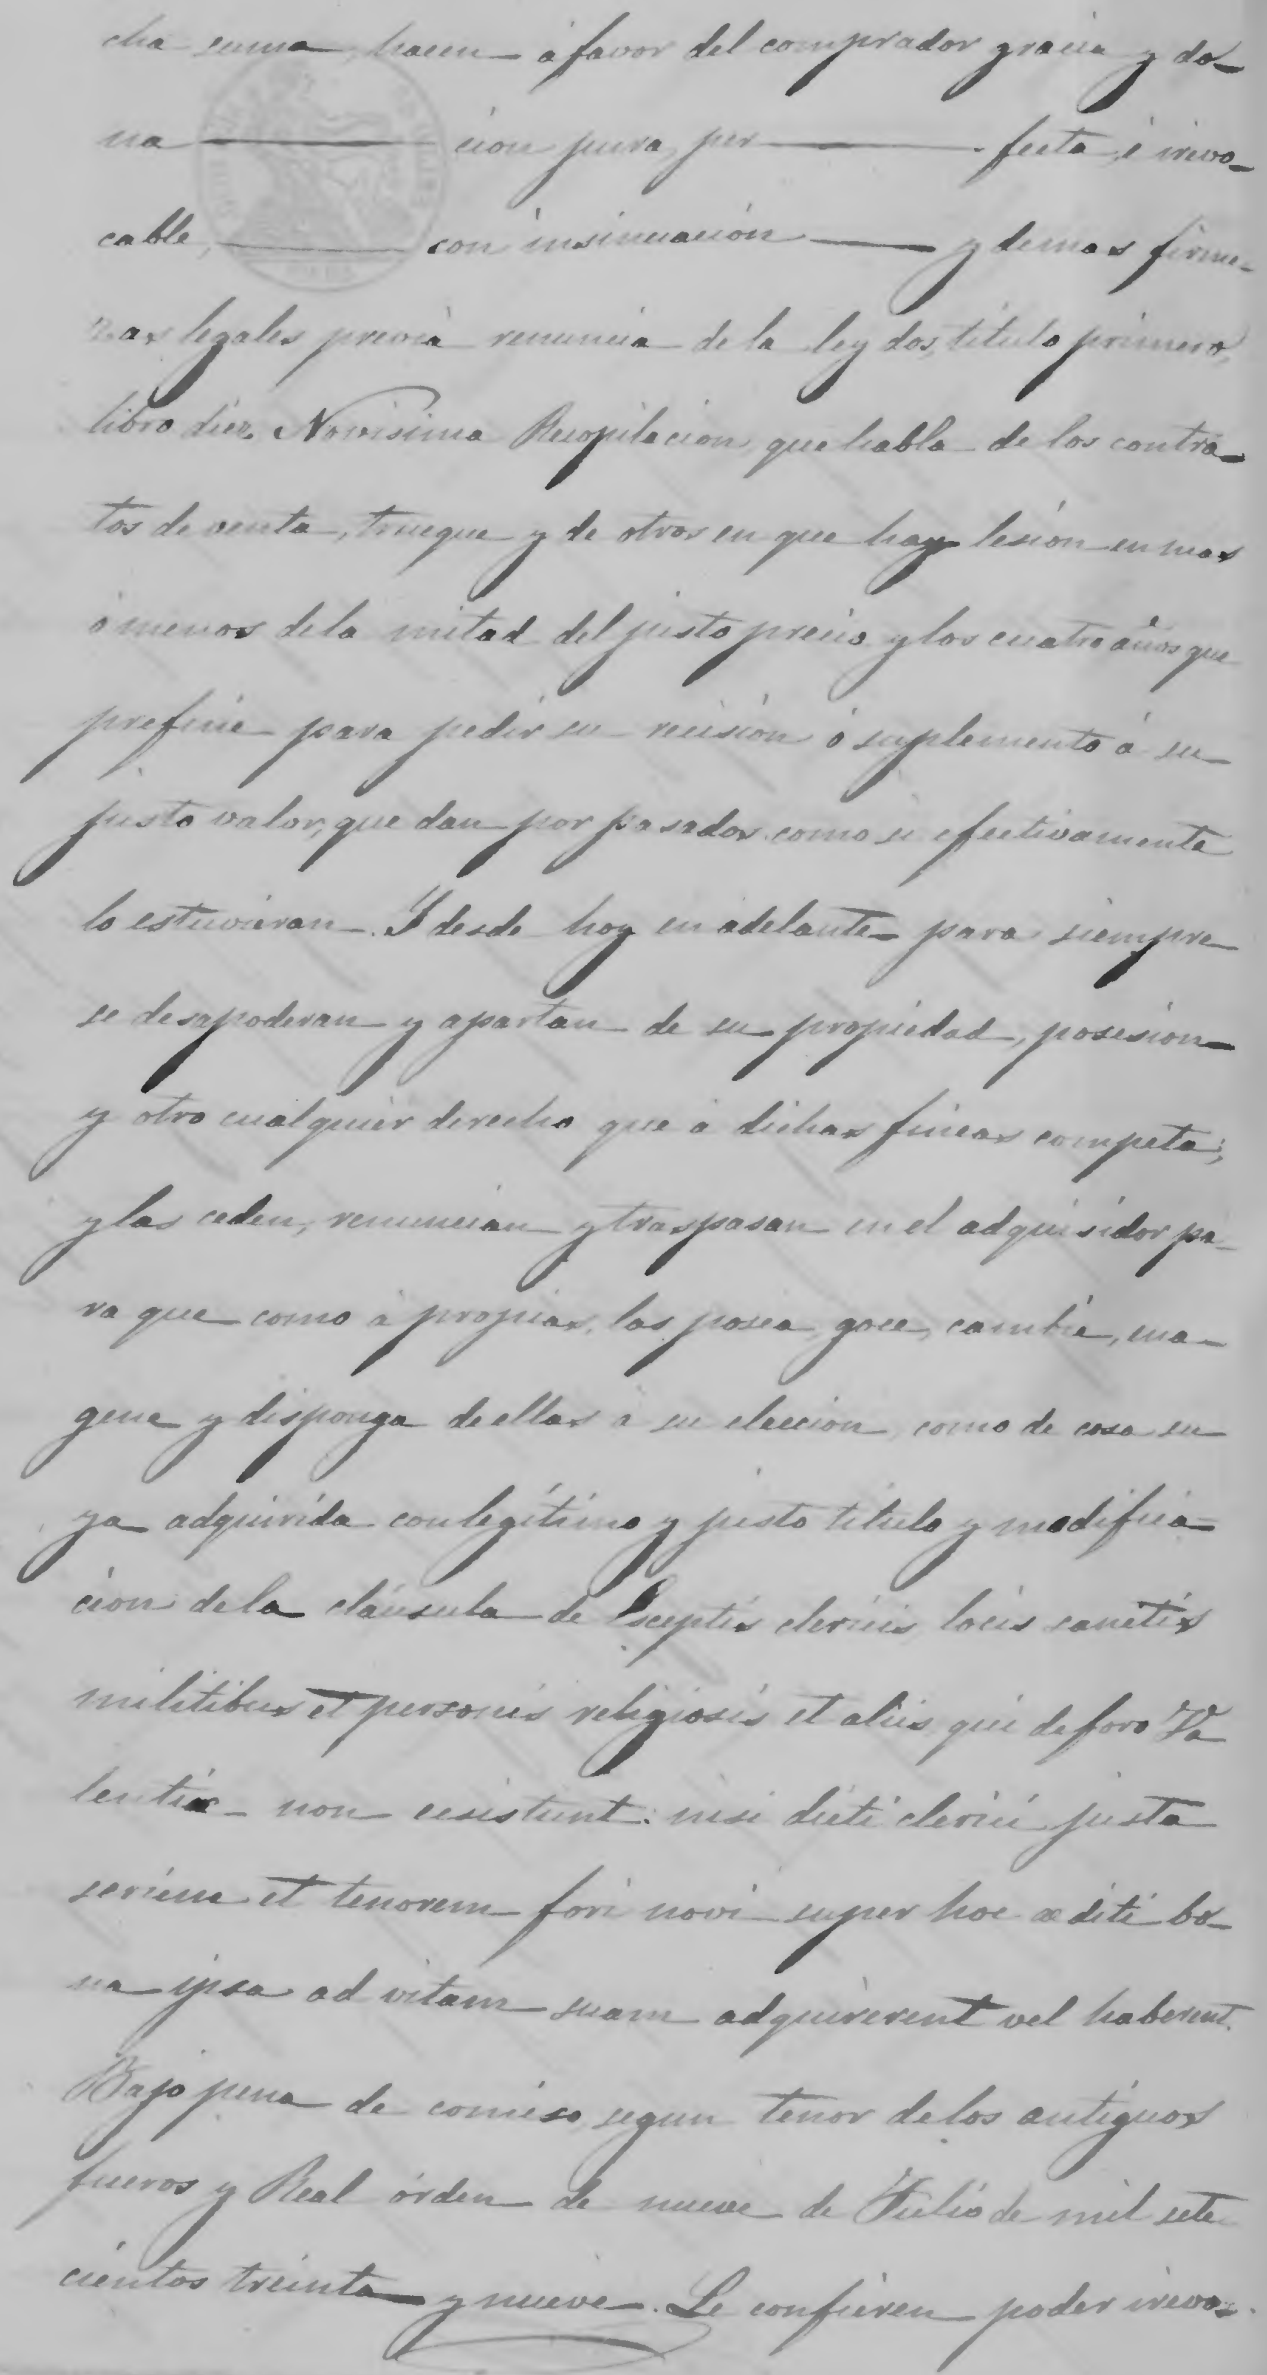 cha suma hacen á favor del comprador gracia y do-
na cion pura, per fecta, é irevo-
cable, con insinuación y demas firme-
zas legales previa renuncia de la ley dos, título primero,
libro diez, Novisima Recopilacion, que habla de los contra-
tos de venta, trueque y de otros en que hay lesión en mas
ó menos de la mitad del justo precio y los cuatro años que
prefine para pedir su recisión ó suplemento á su
justo valor, que dan por pasados como si efectivamente
lo estuvieran. Y desde hoy en adelante para siempre
se desapoderan y apartan de su propiedad, posesion
y otro cualquier derecho que á dichas fincas competa;
y las ceden, renuncian y traspasan en el adquisidor pa-
ra que como á propias, las posea, goce, cambie, ena-
gene y disponga de ellas á su eleccion, como de cosa su
ya adquirida con legítimo y justo título y modifica-
cion de la cláusula de Esceptis clericis, locis sanctis
militibus et personis religiosis et aliis, qui de foro Va
lentiæ non ecsistunt: nisi dicti clerici justa
seriem et tenorem fori novi super hoc æditi bo-
na ipsa ad vitam suam adquirerent vel haberent.
Bajo pena de comiso, segun tenor de los antiguos
fueros y Real órden de nueve de Julio de mil sete
cientos treinta y nueve. Le confieren poder irevo-